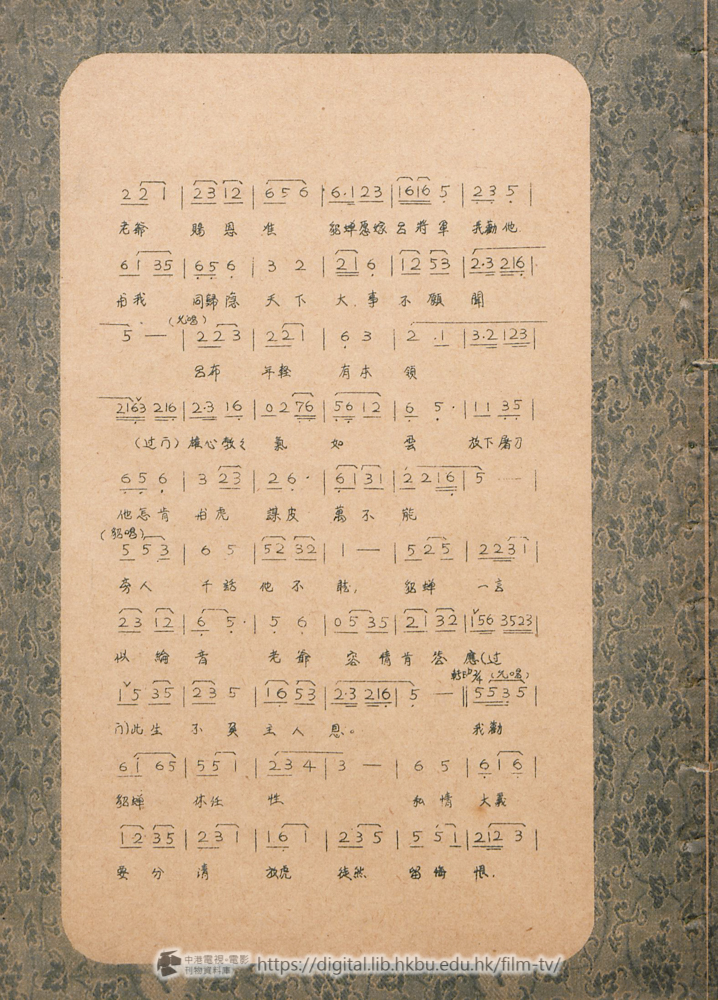 2 2 1 | 2 3 1 2 | 6 5 6 | 6 · 1 2 3 | 1 6 1 6 5 | 2 3 5 |
老爺 賜 恩 准 貂蟬愿嫁呂將軍 我勸他
6 1 3 5 | 6 5 6 | 3 2 | 2 1 6 | 1 2 5 3 | 2·3 2 1 6 |
同歸隱 天下 大 事 不 願 聞
(允唱)
5 — | 2 2 3 | 2 2 1 | 6 3 | 2 · 1 | 3·2 1 2 3 |
呂布 年輕 有本 領
2 1 6 3 2 1 6 | 2·3 1 6 | 0 2 7 6 | 5 6 1 2 | 6 5 · | 1 1 3 5 |
(过门) 雄心勃々 氣 如 雲 放下屠刀
6 5 6 | 3 2 3 | 2 6 · | 6 1 3 1 | 2 2 1 6 | 5
他怎肯 虎 謀皮 萬不 能
(貂唱)
5 5 3 | 6 5 | 5 2 3 2 | 1 — | 5 2 5 | 2 2 3 1 |
旁人 千話 他 不 聽, 貂蟬 一言
2 3 1 2 | 6 5 · | 5 6 | 0 5 3 5 | 2 1 3 2 | 1 5 6 3 5 2 3 |
似 綸 音 老爺 容 情 肯 答 應(过
(允唱)
1 5 3 5 | 2 3 5 | 1 6 5 3 | 2·3 2 1 6 | 5 — || 5 5 3 5 |
门)此生 不 負 主 人 恩。 我勸
6 1 6 5 | 5 5 1 | 2 3 4 | 3 — | 6 5 | 6 1 6 |
貂蟬 休任 性 私情 大義
1 2 3 5 | 2 3 1 | 1 6 1 | 2 3 5 | 5 5 1 | 2 1 2 3 |
要 分 清 放虎 徒然 留悔 恨.
中港電視·電影
刊物資料庫
https://digital.lib.hkbu.edu.hk/film-tv/